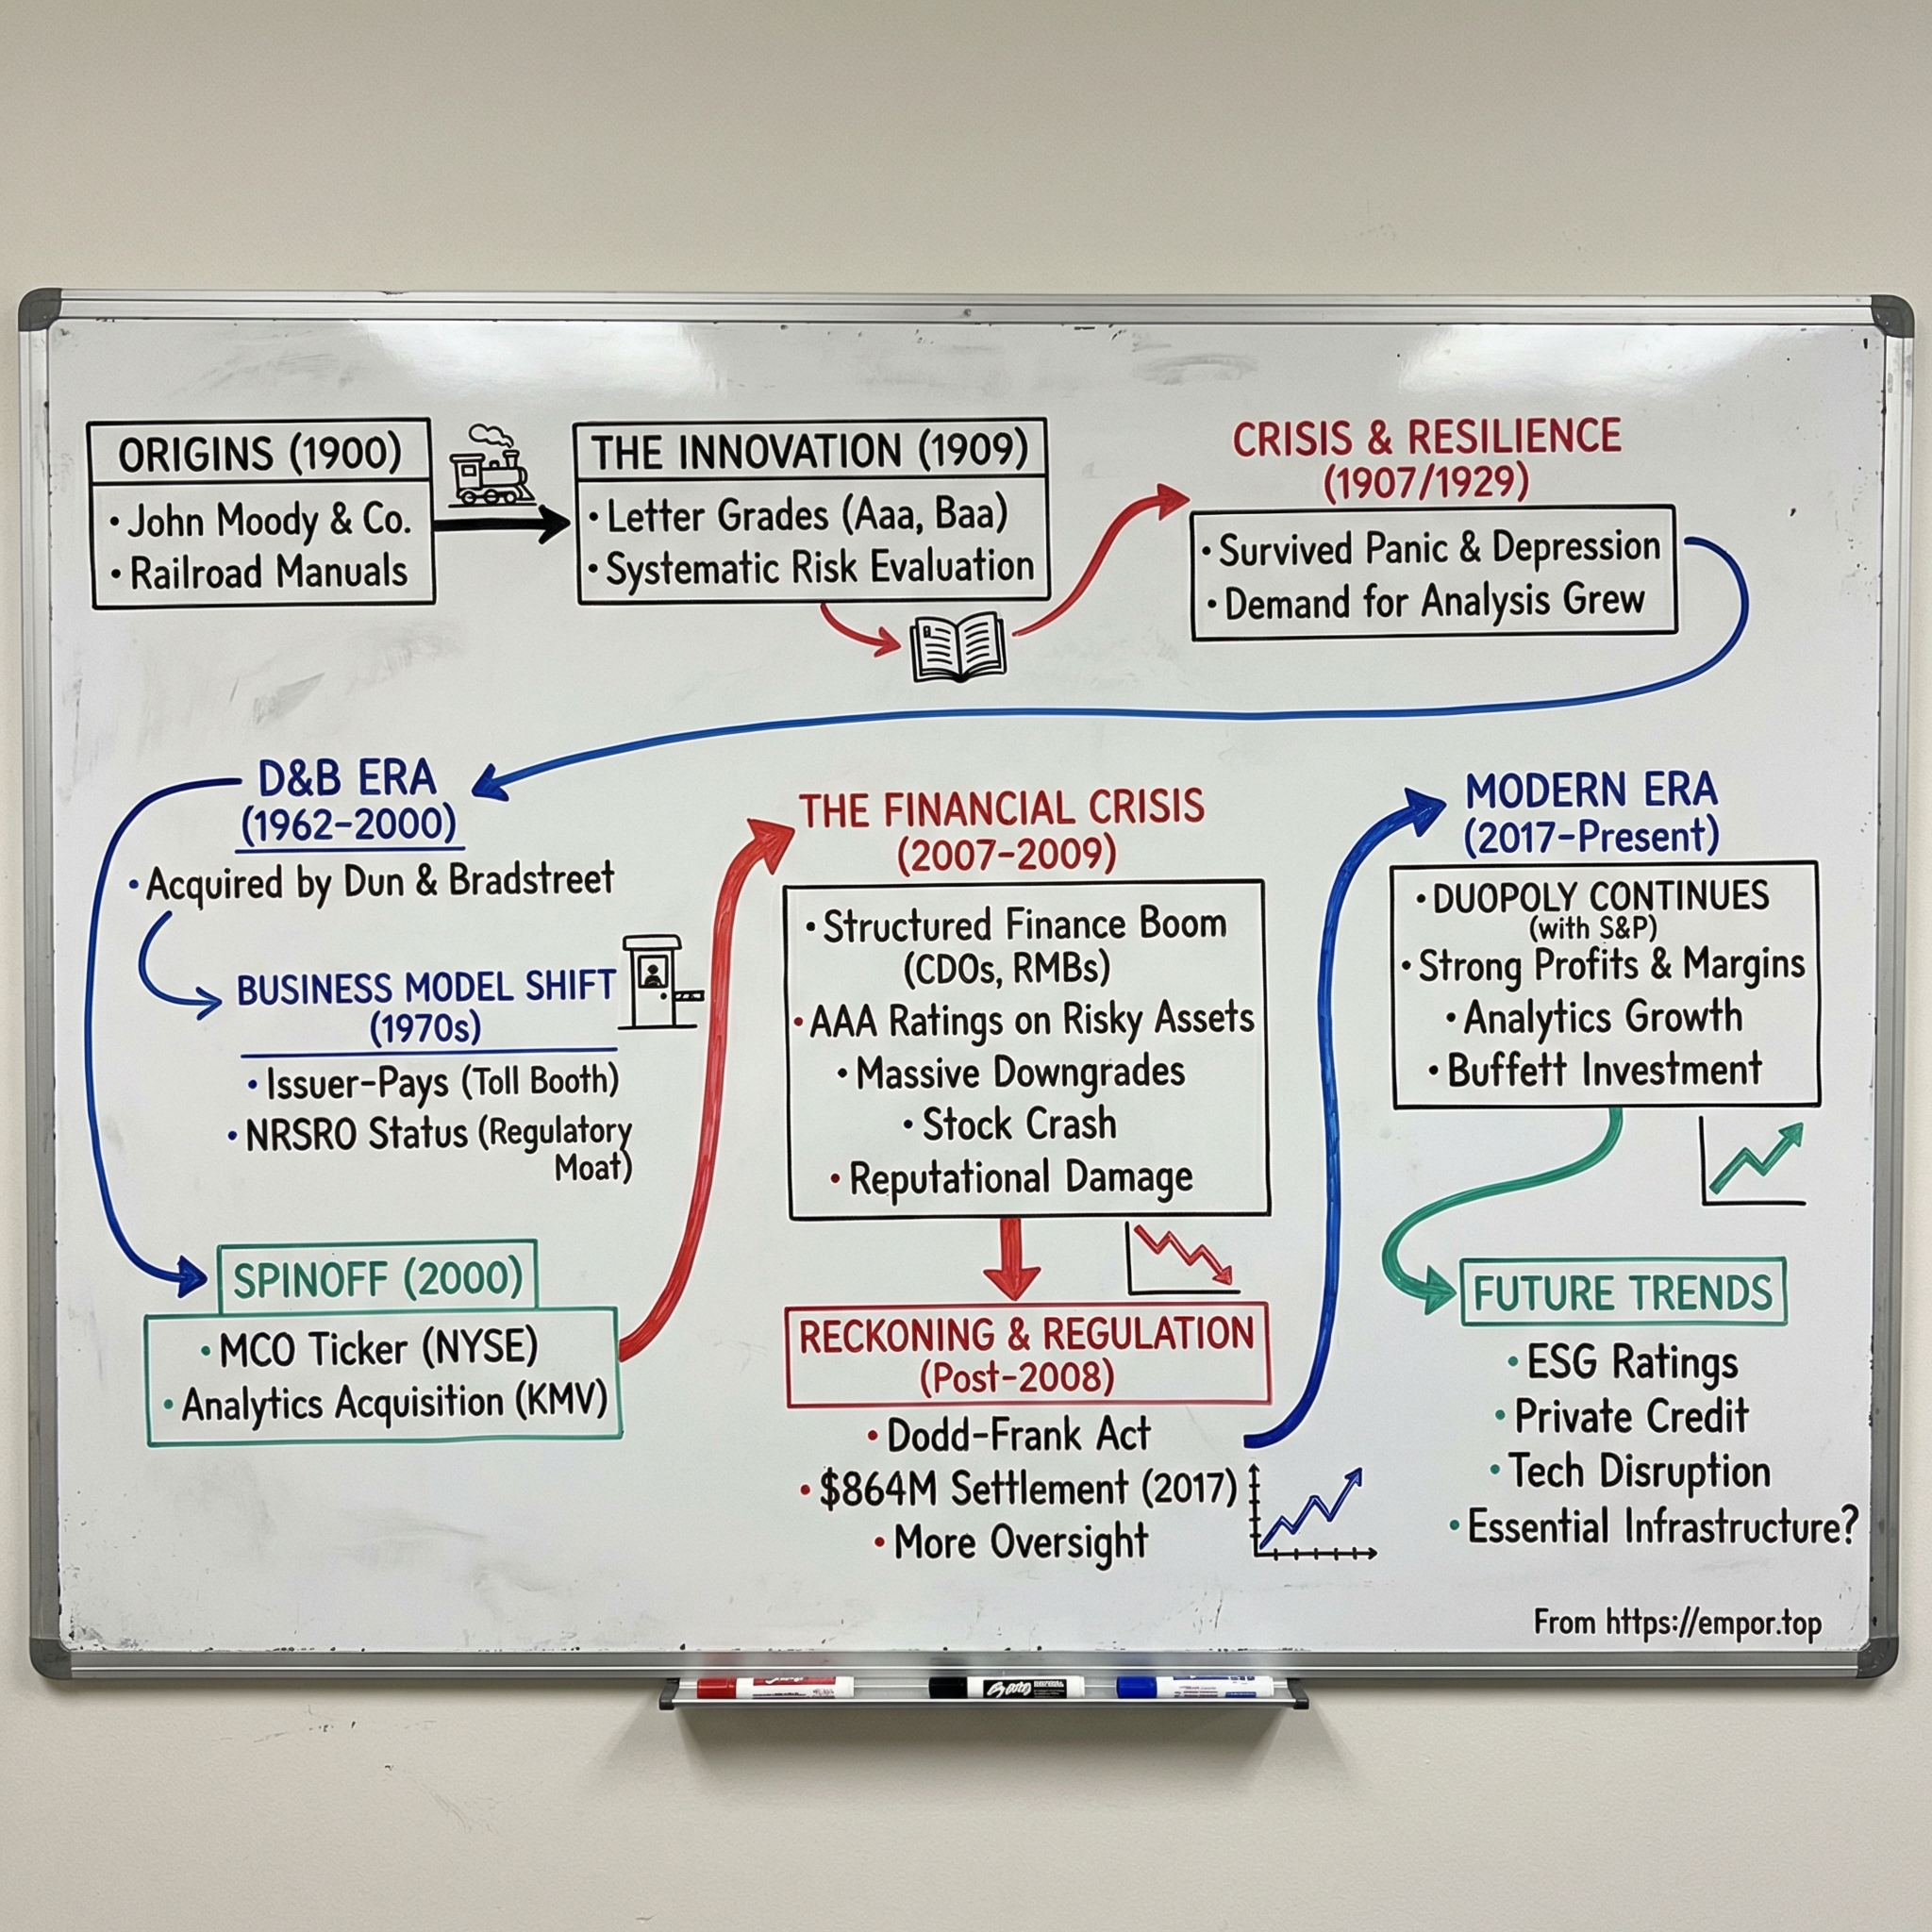 ORIGINS (1900)
• John Moody & Co.
• Railroad Manuals
THE INNOVATION (1909)
• Letter Grades (Aaa, Baa)
• Systematic Risk Evaluation
CRISIS & RESILIENCE
(1907/1929)
• Survived Panic & Depression
• Demand for Analysis Grew
D&B ERA
(1962–2000)
• Acquired by Dun & Bradstreet
BUSINESS MODEL SHIFT
(1970s)
• Issuer-Pays (Toll Booth)
• NRSRO Status (Regulatory
Moat)
SPINOFF (2000)
• MCO Ticker (NYSE)
• Analytics Acquisition (KMV)
THE FINANCIAL CRISIS
(2007–2009)
• Structured Finance Boom
(CDOs, RMBs)
• AAA Ratings on Risky Assets
• Massive Downgrades
• Stock Crash
• Reputational Damage
RECKONING & REGULATION
(Post-2008)
• Dodd-Frank Act
• $864M Settlement (2017)
• More Oversight
MODERN ERA
(2017–Present)
• DUOPOLY CONTINUES
(with S&P)
• Strong Profits & Margins
• Analytics Growth
• Buffett Investment
FUTURE TRENDS
• ESG Ratings
• Private Credit
• Tech Disruption
• Essential Infrastructure?
From https://empor.top